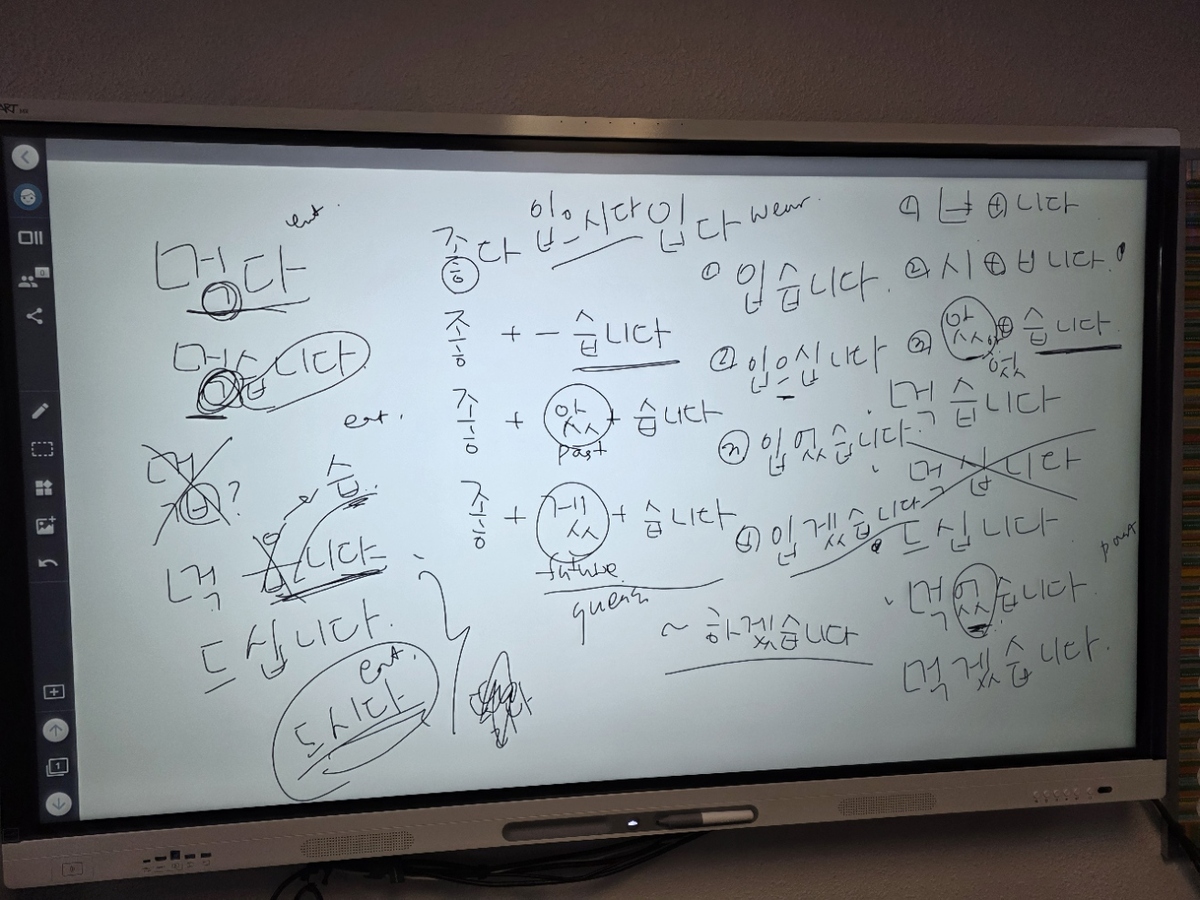 eat.
먹다
먹습니다
eat.
습.
먹 니다
드십니다.
eat.
드시다
좋다 입으시다 입다 wear.
좋 + - 습니다
좋 + 았 + 습니다
past
좋 + 겠 + 습니다
future.
~ 하겠습니다
① 입습니다.
② 입으십니다
③ 입었습니다.
④ 입겠습니다
① ㅂ ⊕ 니다
② 시 ⊕ ㅂ니다.
③ 았 ⊕ 습니다
었
먹습니다
먹십니다
드십니다
past
먹었습니다.
먹겠습니다.